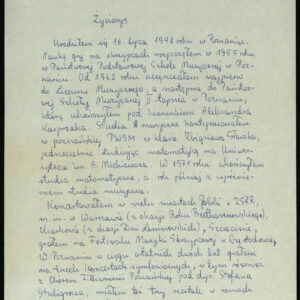 Życiorys
Urodziłem się 16. lipca 1948 roku w Poznaniu.
Naukę gry na skrzypcach rozpocząłem w 1955 roku
w Państwowej Podstawowej Szkole Muzycznej w Poz-
naniu. Od 1962 roku uczęszczałem najpierw
do Liceum Muzycznego, a następnie do Państwo-
wej Szkoły Muzycznej II stopnia w Poznaniu,
którą ukończyłem pod kierunkiem Aleksandra
Studia muzyczne kontynuowałem
w poznańskiej PWSM w klasie Zbigniewa
jednocześnie studiując matematykę na Uniwer-
sytecie im. A. Mickiewicza. W 1971 roku ukończyłem
studia matematyczne, a rok później z wyróżnie-
niem studia muzyczne.
Koncertowałem w wielu miastach Polski i ZSRR,
m.in. w Warszawie (z okazji Roku Beethovenowskiego),
Charkowie (z okazji Dni Leninowskich), Szczecinie,
grałem na Festiwalu Muzyki
W Poznaniu w ciągu ostatnich dwóch lat grałem
na koncertach symfonicznych, w tym również
z Chórem Filharmonii Poznańskiej pod dyr. Stefana
Stuligrosza, miałem też trzy recitale w ramach